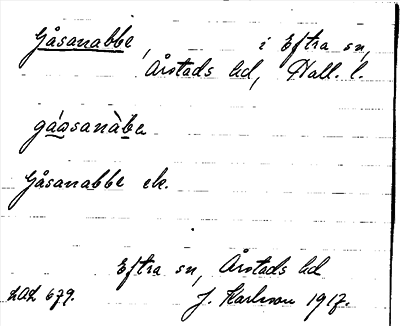 Gåsanabbe, i Eftra sn,
Årstads hd, Hall. l.
gáasanàbe
Gåsanabbe ek.
Eftra sn, Årstads hd
LAL 679. J. Karlsson 1917.